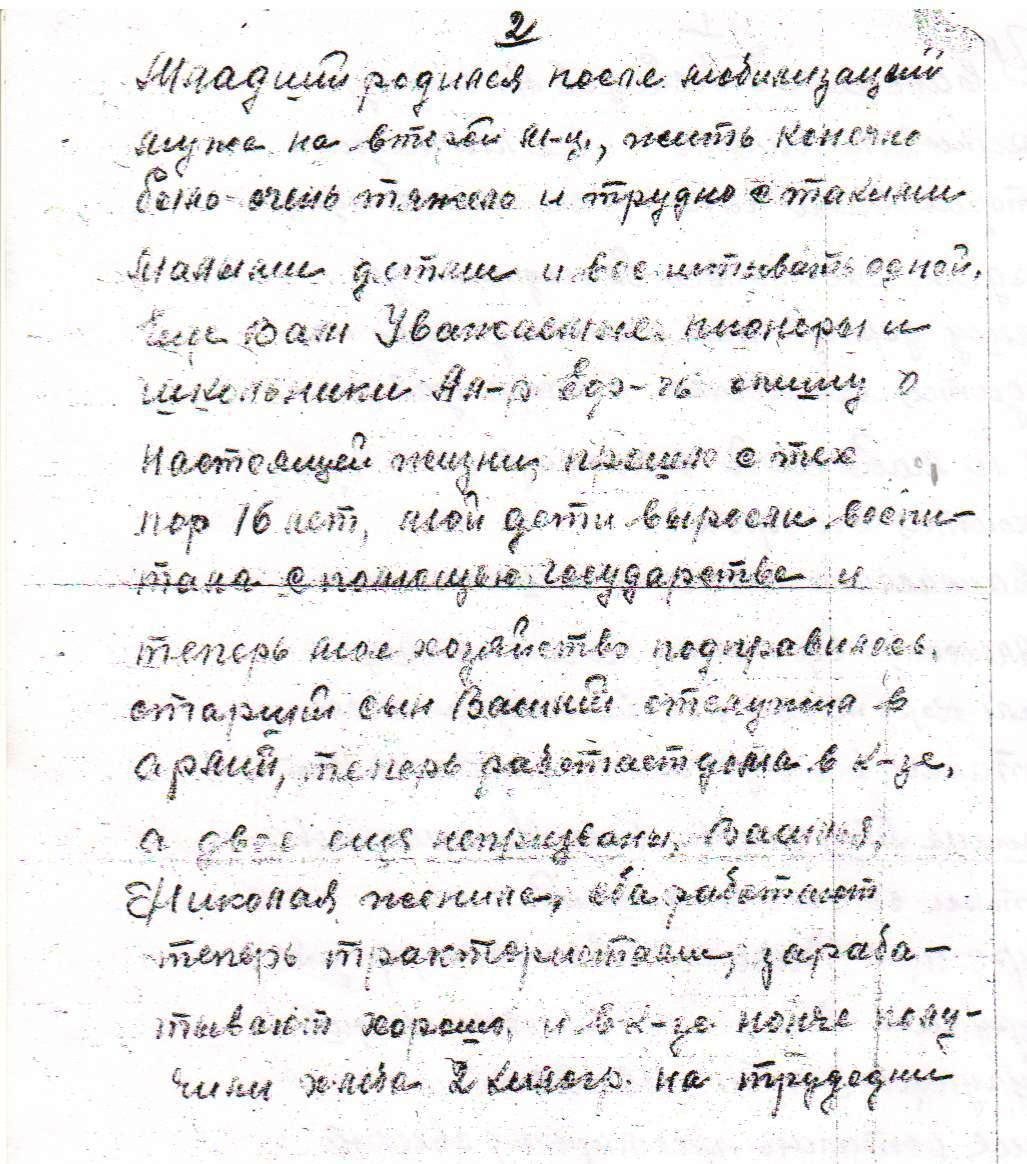 2
Младший родился после мобилизаций
мужа на второй м-ц., жить конечно
было очень тяжело и трудно с такими
малыми детями и воспитывать одной.
Еще Вам Уважаемые пионеры и
школьники Ал-р Едр-чь опишу о
настоящей жизни, прошло с тех
пор 16 лет, мой дети выросли воспи-
тала с помощью государства и
теперь мое хозяйство подправилось
старший сын Василий отслужил в
армий, теперь работает дома в к-зе,
а двое еще непризваны, Василия,
Николая женила, оба работают
теперь трактористами, зараба-
тывают хорошо, и в к-зе нонче полу-
чили хлеба 2 килогр. на трудодни